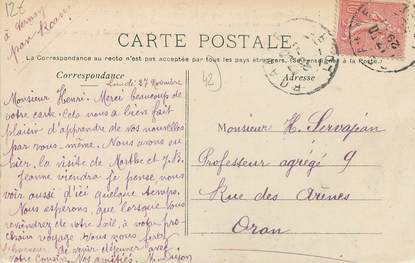 12€
à Vernay
par Roanne
CARTE POSTALE
La Correspondance au recto n'est pas acceptée par tous les pays étrangers. (Se renseigner à la Poste.)
Correspondance
Adresse
Lundi 27 Novembre
42
Monsieur Henri. Merci beaucoup de
votre carte. Cela nous a bien fait
plaisir d'apprendre de vos nouvelles
par vous-même. Nous avons eu
hier, la visite de Marthe et J.B.
Jeanne viendra je pense nous
voir aussi d'ici quelque temps.
Nous espérons, que lorsque vous
reviendrez de votre
prochain voyage vous nous ferez
de venir déjeuner avec
votre Cousin. Nos amitiés.
Monsieur H. Servajean
Professeur agrégé 9
Rue des Arènes
Oran